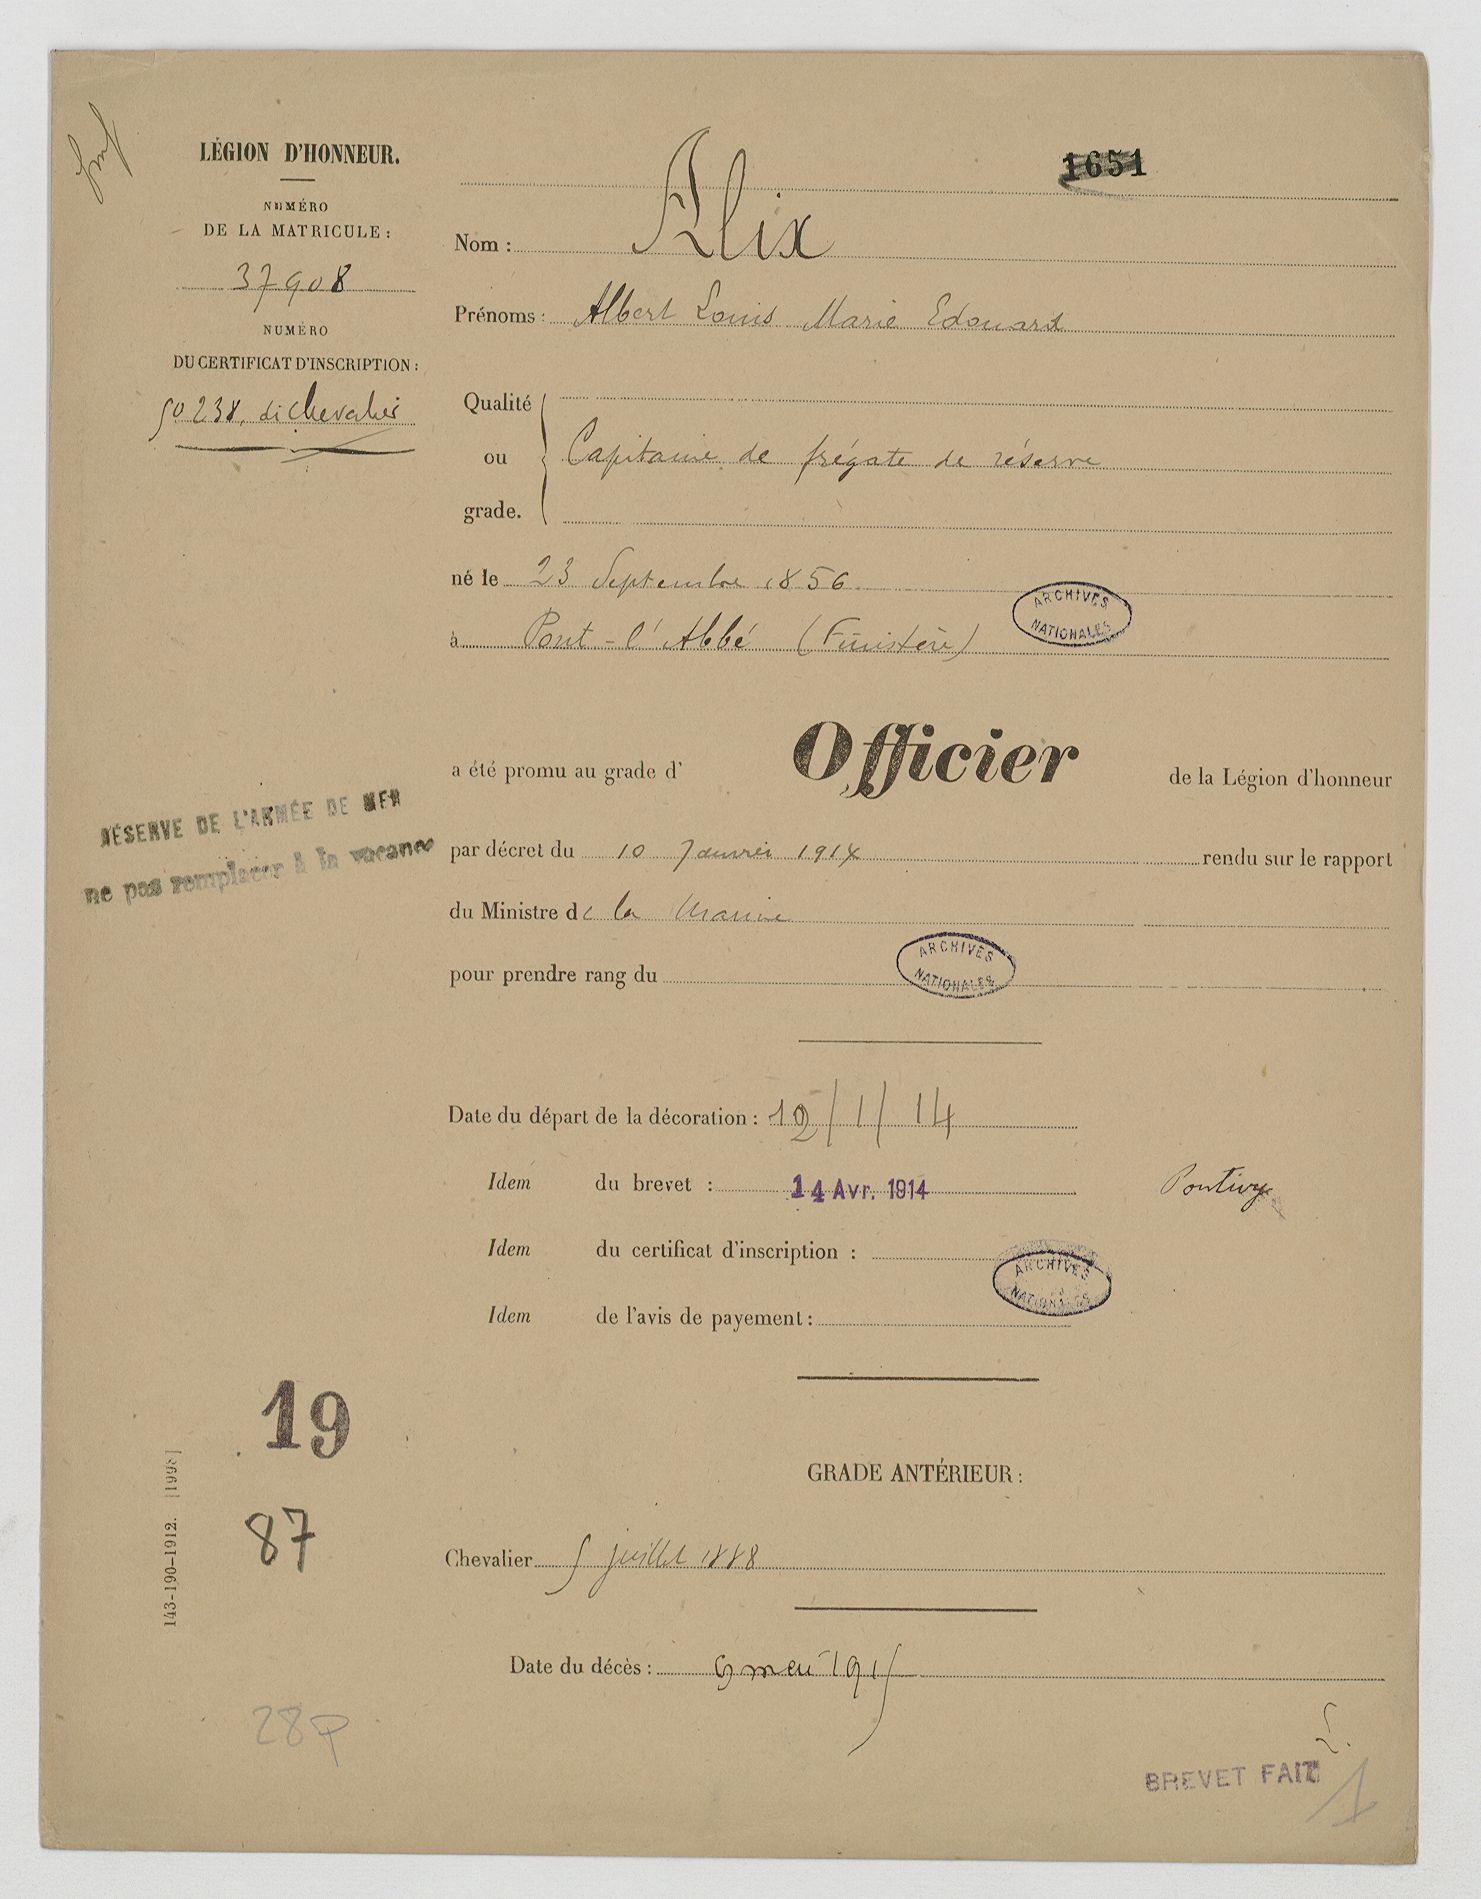 LÉGION D'HONNEUR.
NUMÉRO
DE LA MATRICULE :
37908
NUMÉRO
DU CERTIFICAT D'INSCRIPTION :
50238, de Chevalier
1651
Nom : Alix
Prénoms : Albert Louis Marie Edouard
Qualité
ou
grade.
Capitaine de frégate de réserve
né le 23 Septembre 1856
à Pont-l'Abbé (Finistère)
ARCHIVES
NATIONALES
a été promu au grade d' Officier de la Légion d'honneur
RÉSERVE DE L'ARMÉE DE MER
ne pas remplacer à la vacance
par décret du 10 Janvier 1914 rendu sur le rapport
du Ministre de la Marine
pour prendre rang du
ARCHIVES
NATIONALES
Date du départ de la décoration : 12/1/14
Idem du brevet : 14 Avr. 1914
Pontivy
Idem du certificat d'inscription :
ARCHIVES
NATIONALES
Idem de l'avis de payement :
19
87
143-190-1912. [1998]
GRADE ANTÉRIEUR :
Chevalier 5 juillet 1888
Date du décès : 9 mai 1915
28 P
BREVET FAIT
1